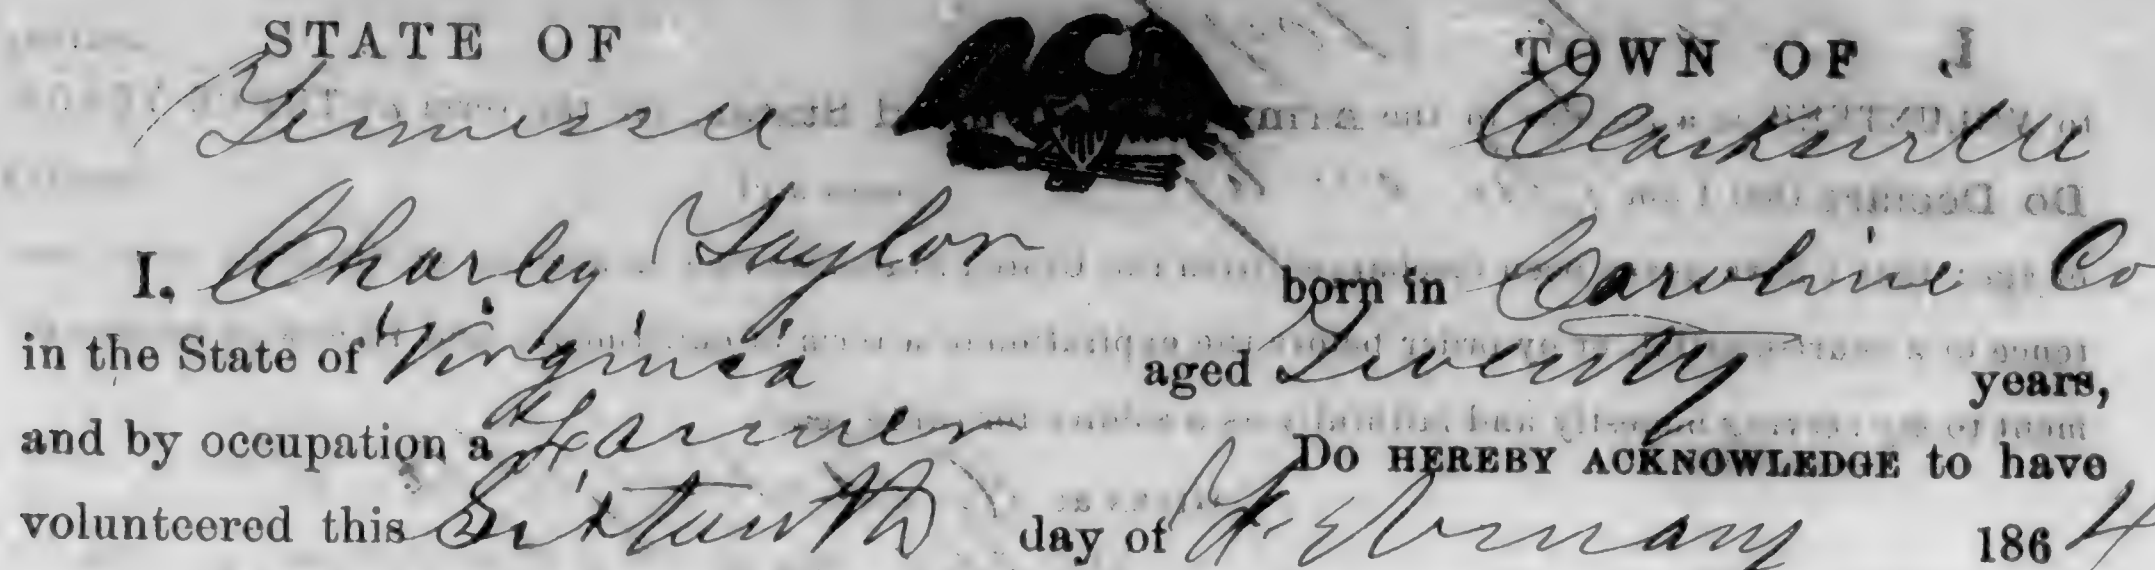 STATE OF TOWN OF
Tennessee Clarksville
I, Charley Taylor born in Caroline Co
in the State of Virginia aged Twenty years,
and by occupation a Farmer Do HEREBY ACKNOWLEDGE to have
volunteered this Sixteenth day of February 1864